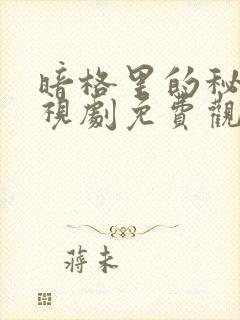 暗格里的秘
視劇免費觀
蔣未